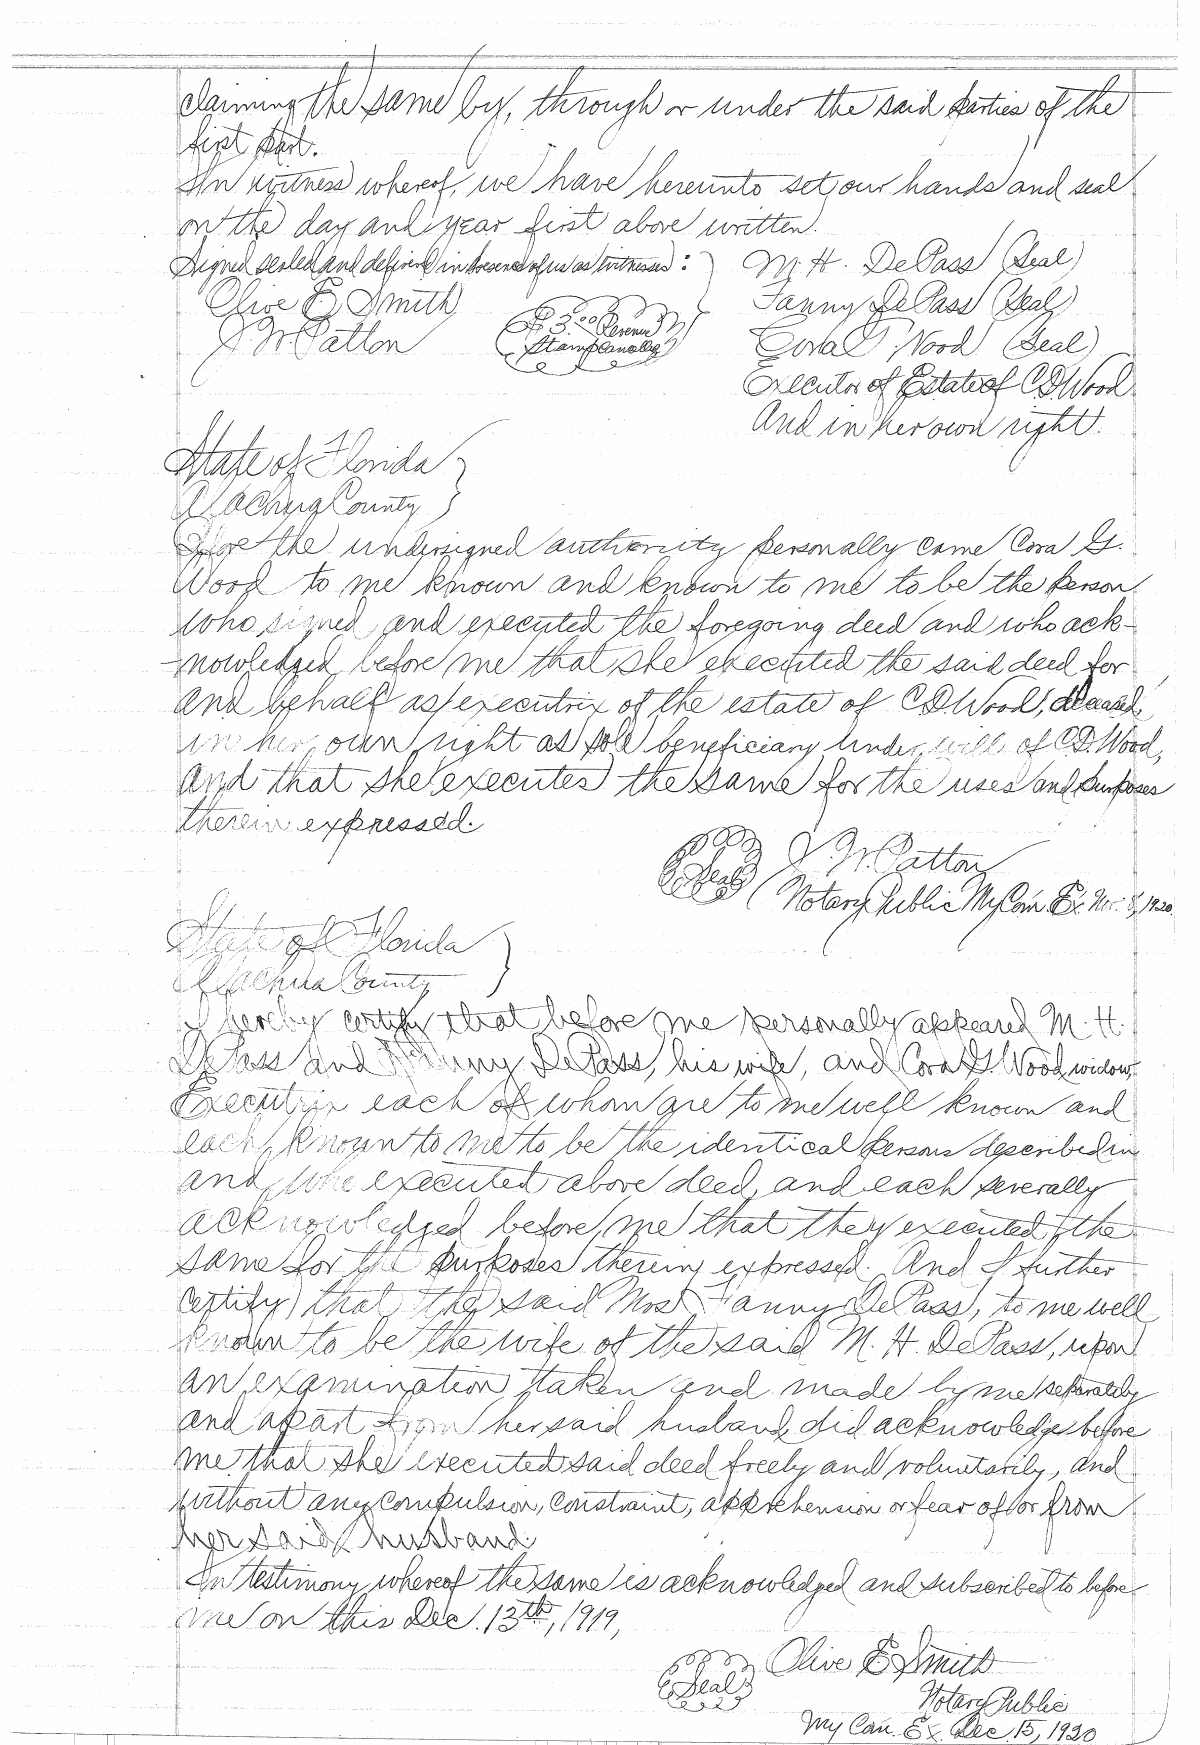 claiming the same by, through or under the said parties of the
first part.
In witness whereof, we have hereunto set our hands and seal
on the day and year first above written.
Signed sealed and delivered in presence of us as witnesses:
M. H. DePass (Seal)
Olive E Smith
Fanny DePass (Seal)
J W Patton
$3.00 Revenue
Stamp Cancelled
Cora G Wood (Seal)
Executor of Estate of C.D. Wood
And in her own right.
State of Florida
Alachua County
Before the undersigned authority personally came Cora G.
Wood to me known and known to me to be the person
who signed and executed the foregoing deed and who ack-
nowledged before me that she executed the said deed for
and behalf as executrix of the estate of C.D. Wood, deceased,
in her own right as sole beneficiary under will of C.D. Wood,
and that she executes the same for the uses and purposes
therein expressed.
Seal
J W Patton
Notary Public My Com. Ex. Nov. 8, 1920
State of Florida
Alachua County
I hereby certify that before me personally appeared M. H.
DePass and Fanny DePass, his wife, and Cora G. Wood widow,
Executrix each of whom are to me well known and
each known to me to be the identical persons described in
and who executed above deed, and each severally
acknowledged before me that they executed the
same for the purposes therein expressed. And I further
certify that the said Mrs Fanny DePass, to me well
known to be the wife of the said M. H. DePass, upon
an examination taken and made by me separately
and apart from her said husband, did acknowledge before
me that she executed said deed freely and voluntarily, and
without any compulsion, constraint, apprehension or fear of or from
her said husband.
In testimony whereof the same is acknowledged and subscribed to before
me on this Dec. 13th, 1919,
Seal
Olive E Smith
Notary Public
My Con. Ex. Dec 15, 1920